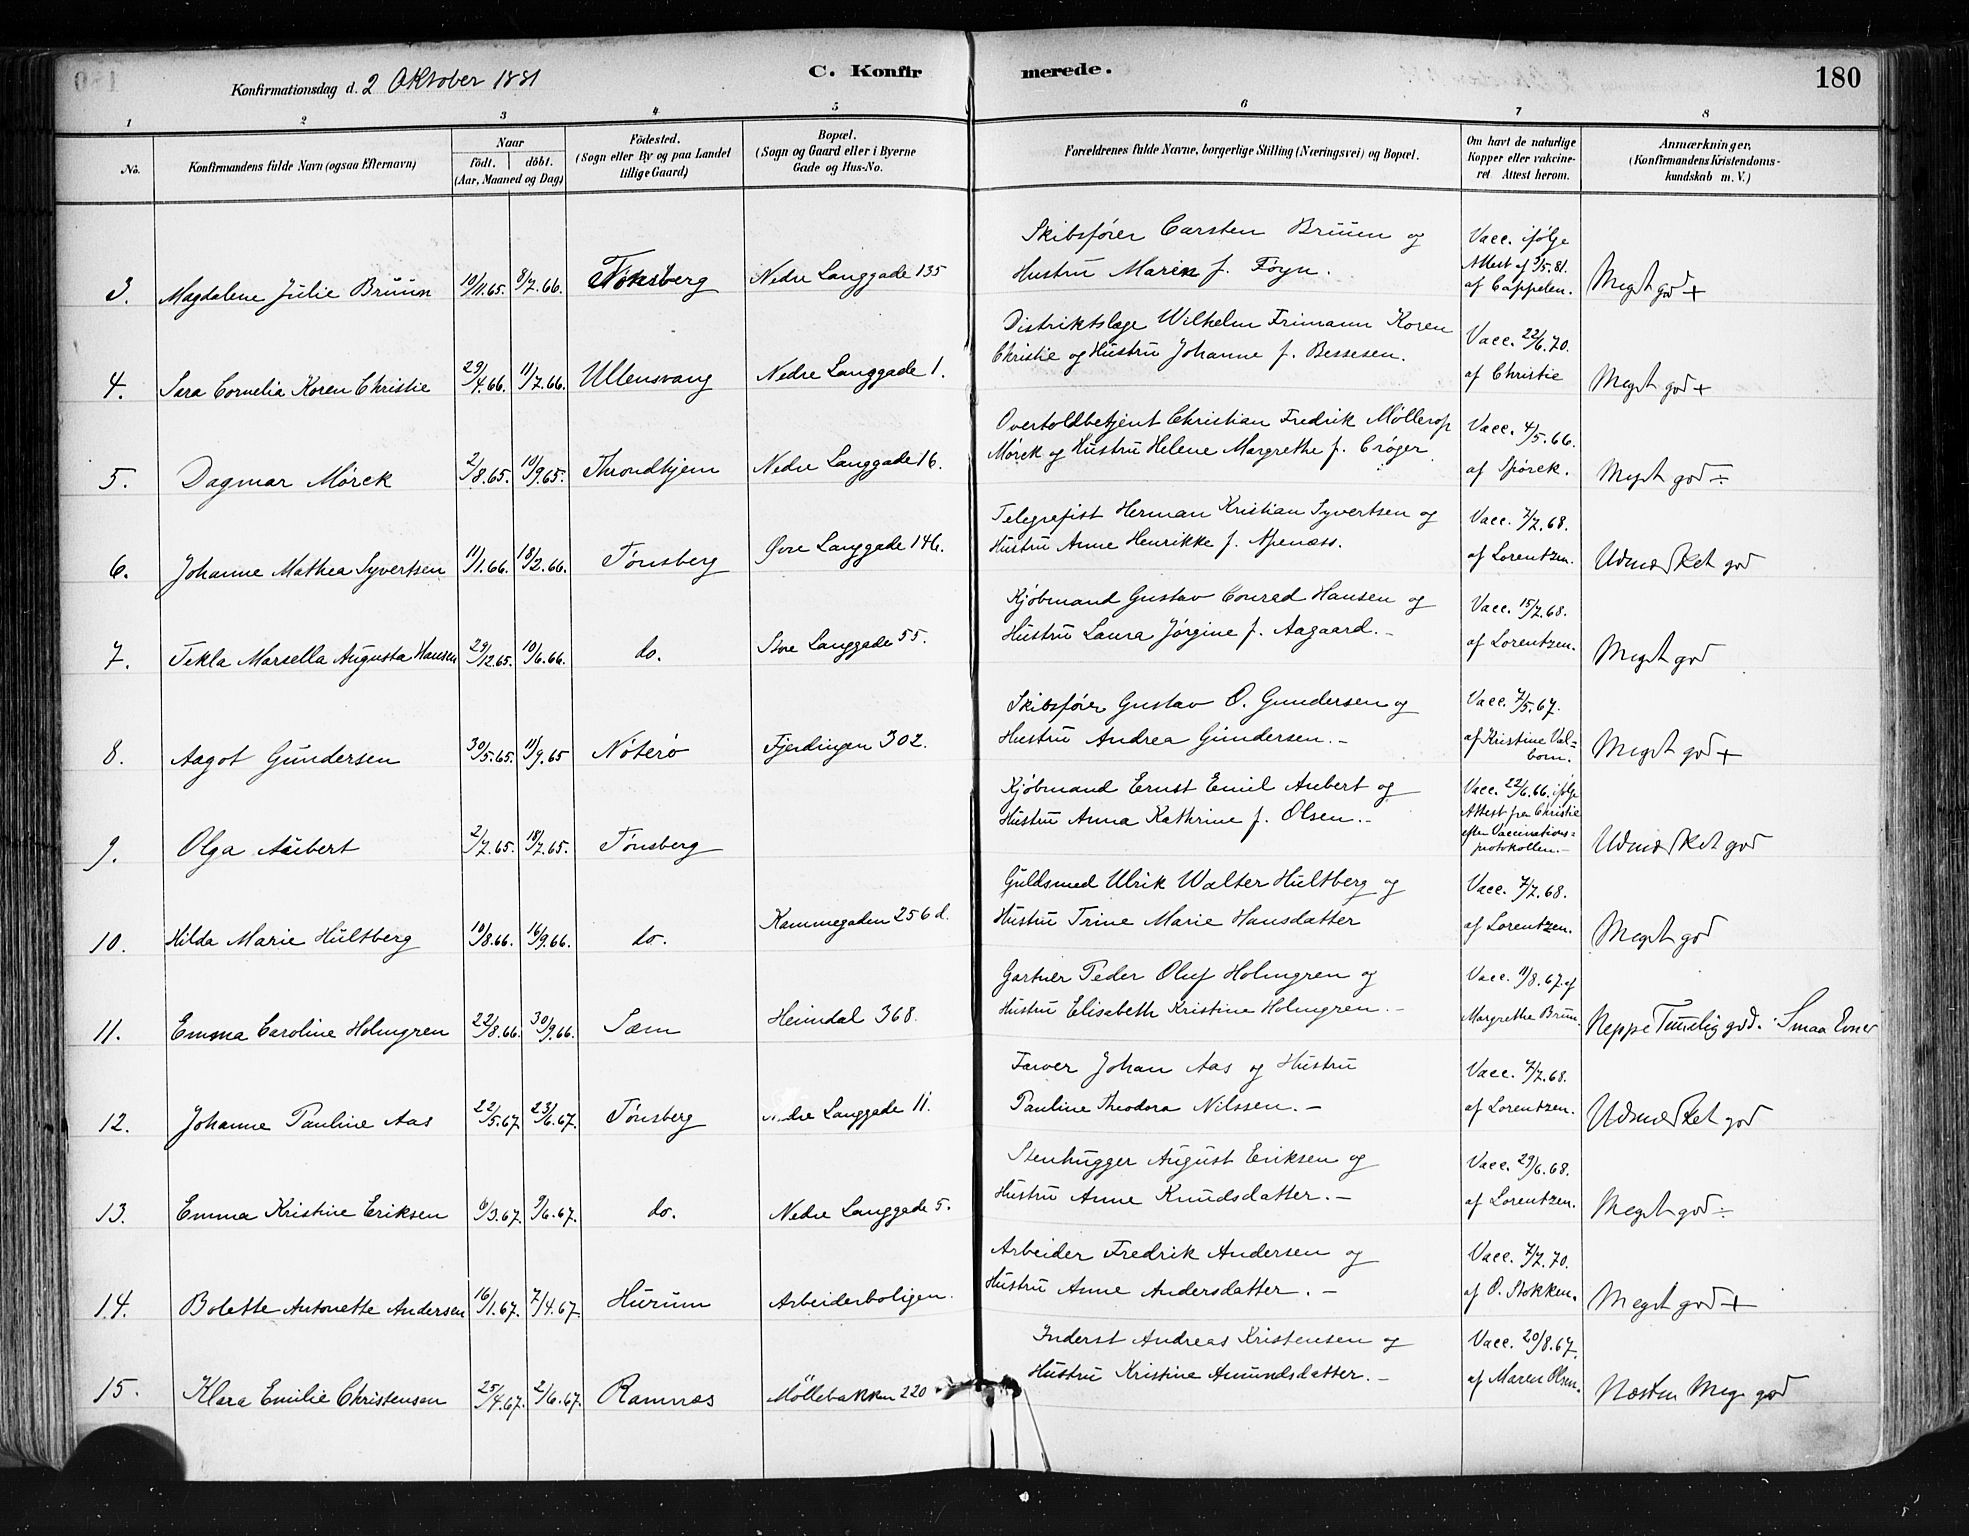 Konfirmationsdag d. 2 Oktober 1881
C. Konfirmerede.
180
1 2 3 4 5 6 7 8
No.
Konfirmandens fulde Navn (ogsaa Efternavn)
Naar
födt. döbt.
(Aar, Maaned og Dag)
Födested.
(Sogn eller By og paa Landet
tillige Gaard)
Bopæl.
(Sogn og Gaard eller i Byerne
Gade og Hus-No.
Forældrenes fulde Navne, borgerlige Stilling (Næringsvei) og Bopæl.
Om havt de naturlige
Kopper eller vakcine-
ret Attest herom.
Anmærkninger,
(Konfirmandens Kristendoms-
kundskab m. V.)
3. Magdalene Julie Bruun 10/11.65. 8/7.66. Tønsberg Nedre Langgade 135
Skibsfører Carsten Bruun og
Hustru Maren f. Føyn.
Vacc. ifølge
Attest af 3/5.81.
af Cappelen.
Meget god +
4. Sara Cornelia Koren Christie 29/4.66. 11/7.66. Ullensvang Nedre Langgade 1.
Distriktslæge Wilhelm Frimann Koren
Christie og Hustru Johanne f. Bessesen.
Vacc. 22/6.70.
af Christie
Meget god +
5. Dagmar Mörck 2/8.65. 10/9.65. Throndhjem Nedre Langgade 16.
Overtoldbetjent Christian Fredrik Möllerop
Mörck og Hustru Helene Margrethe f. Cröger
Vacc. 4/5.66.
af Spörck.
Meget god ÷
6. Johanne Mathea Syvertsen 11/1.66. 18/2.66. Tönsberg Øvre Langgade 146.
Telegrafist Herman Kristian Syvertsen og
Hustru Anne Henrikke f. Apenæss.
Vacc. 7/7.68.
af Lorentzen.
Udmærket god
7. Tekla Marsella Augusta Hansen 29/12.65. 10/6.66. do. Store Langgade 55.
Kjöbmand Gustav Conrad Hansen og
Hustru Laura Jörgine f. Aagaard. –
Vacc. 15/7.68.
af Lorentzen.
Meget god
8. Aagot Gundersen 30/5.65. 11/9.65 Nöterö Fjerdingen 302.
Skibsfører Gustav O. Gundersen og
Hustru Andrea Gundersen. –
Vacc. 7/5.67.
af Kristine Val=
born.
Meget god +
9. Olga Aubert 2/7.65. 18/7.65. Tönsberg
Kjöbmand Ernst Emil Aubert og
Hustru Anna Kathrine f. Olsen. –
Vacc. 22/6.66. ifølge
Attest fra Christie
efter Vaccinations=
protokollen. –
Udmærket god
10. Hilda Marie Hultberg 10/8.66. 16/9.66. do. Kammegaden 256 d.
Guldsmed Ulrik Walter Hultberg og
Hustru Trine Marie Hansdatter
Vacc. 7/7.68.
af Lorentzen.
Meget god
11. Emma Caroline Holmgren 22/8.66. 30/9.66. Sæm Heimdal 368.
Gartner Peder Oluf Holmgren og
Hustru Elisabeth Kristine Holmgren. –
Vacc. 11/8.67. af
Margrethe Brun.
Neppe Temmelig god. Smaa Evner
12. Johanne Pauline Aas 22/5.67 23/6.67. Tönsberg Nedre Langgade 11.
Farver Johan Aas og Hustru
Pauline Theodora Nilssen. –
Vacc. 7/7.68.
af Lorentzen.
Udmærket god
13. Emma Kristine Eriksen 6/3.67. 9/6.67. do. Nedre Langgade 5.
Stenhugger August Eriksen og
Hustru Anne Knudsdatter. –
Vacc. 29/6.68.
af Lorentzen.
Meget god ÷
14. Bolette Antonette Andersen 16/1.67. 7/4.67. Hurum Arbeiderboligen.
Arbeider Fredrik Andersen og
Hustru Anne Andersdatter. –
Vacc. 7/7.70.
af O. Stokken.
Meget god +
15. Klara Emilie Christensen 25/4.67. 2/6.67. Ramnæs Möllebakken 220
Inderst Andreas Kristensen og
Hustru Kristine Amundsdatter. –
Vacc. 20/8.67.
af Maren Olsen.
Næsten Meg. god